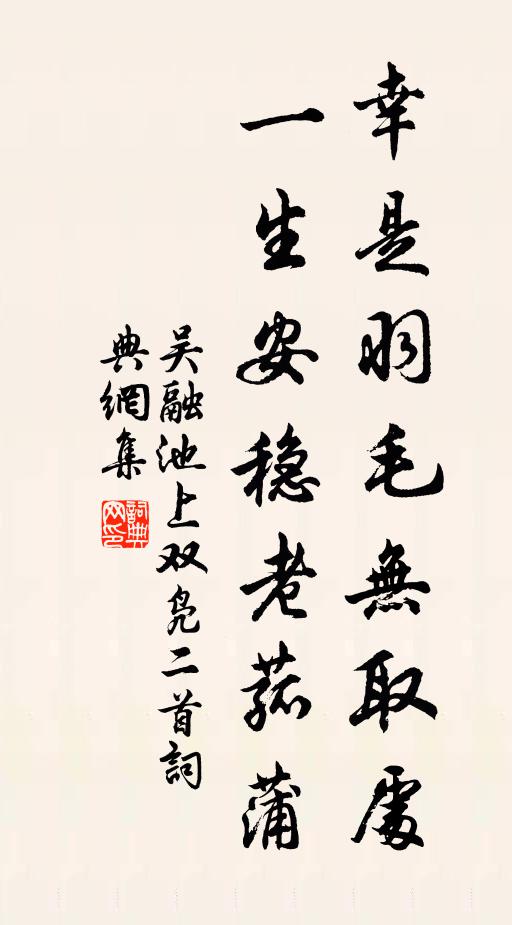 幸是羽毛無取處
一生安穏老菰蒲
吴融池上双凫二首詞
典網集
詞典
网印